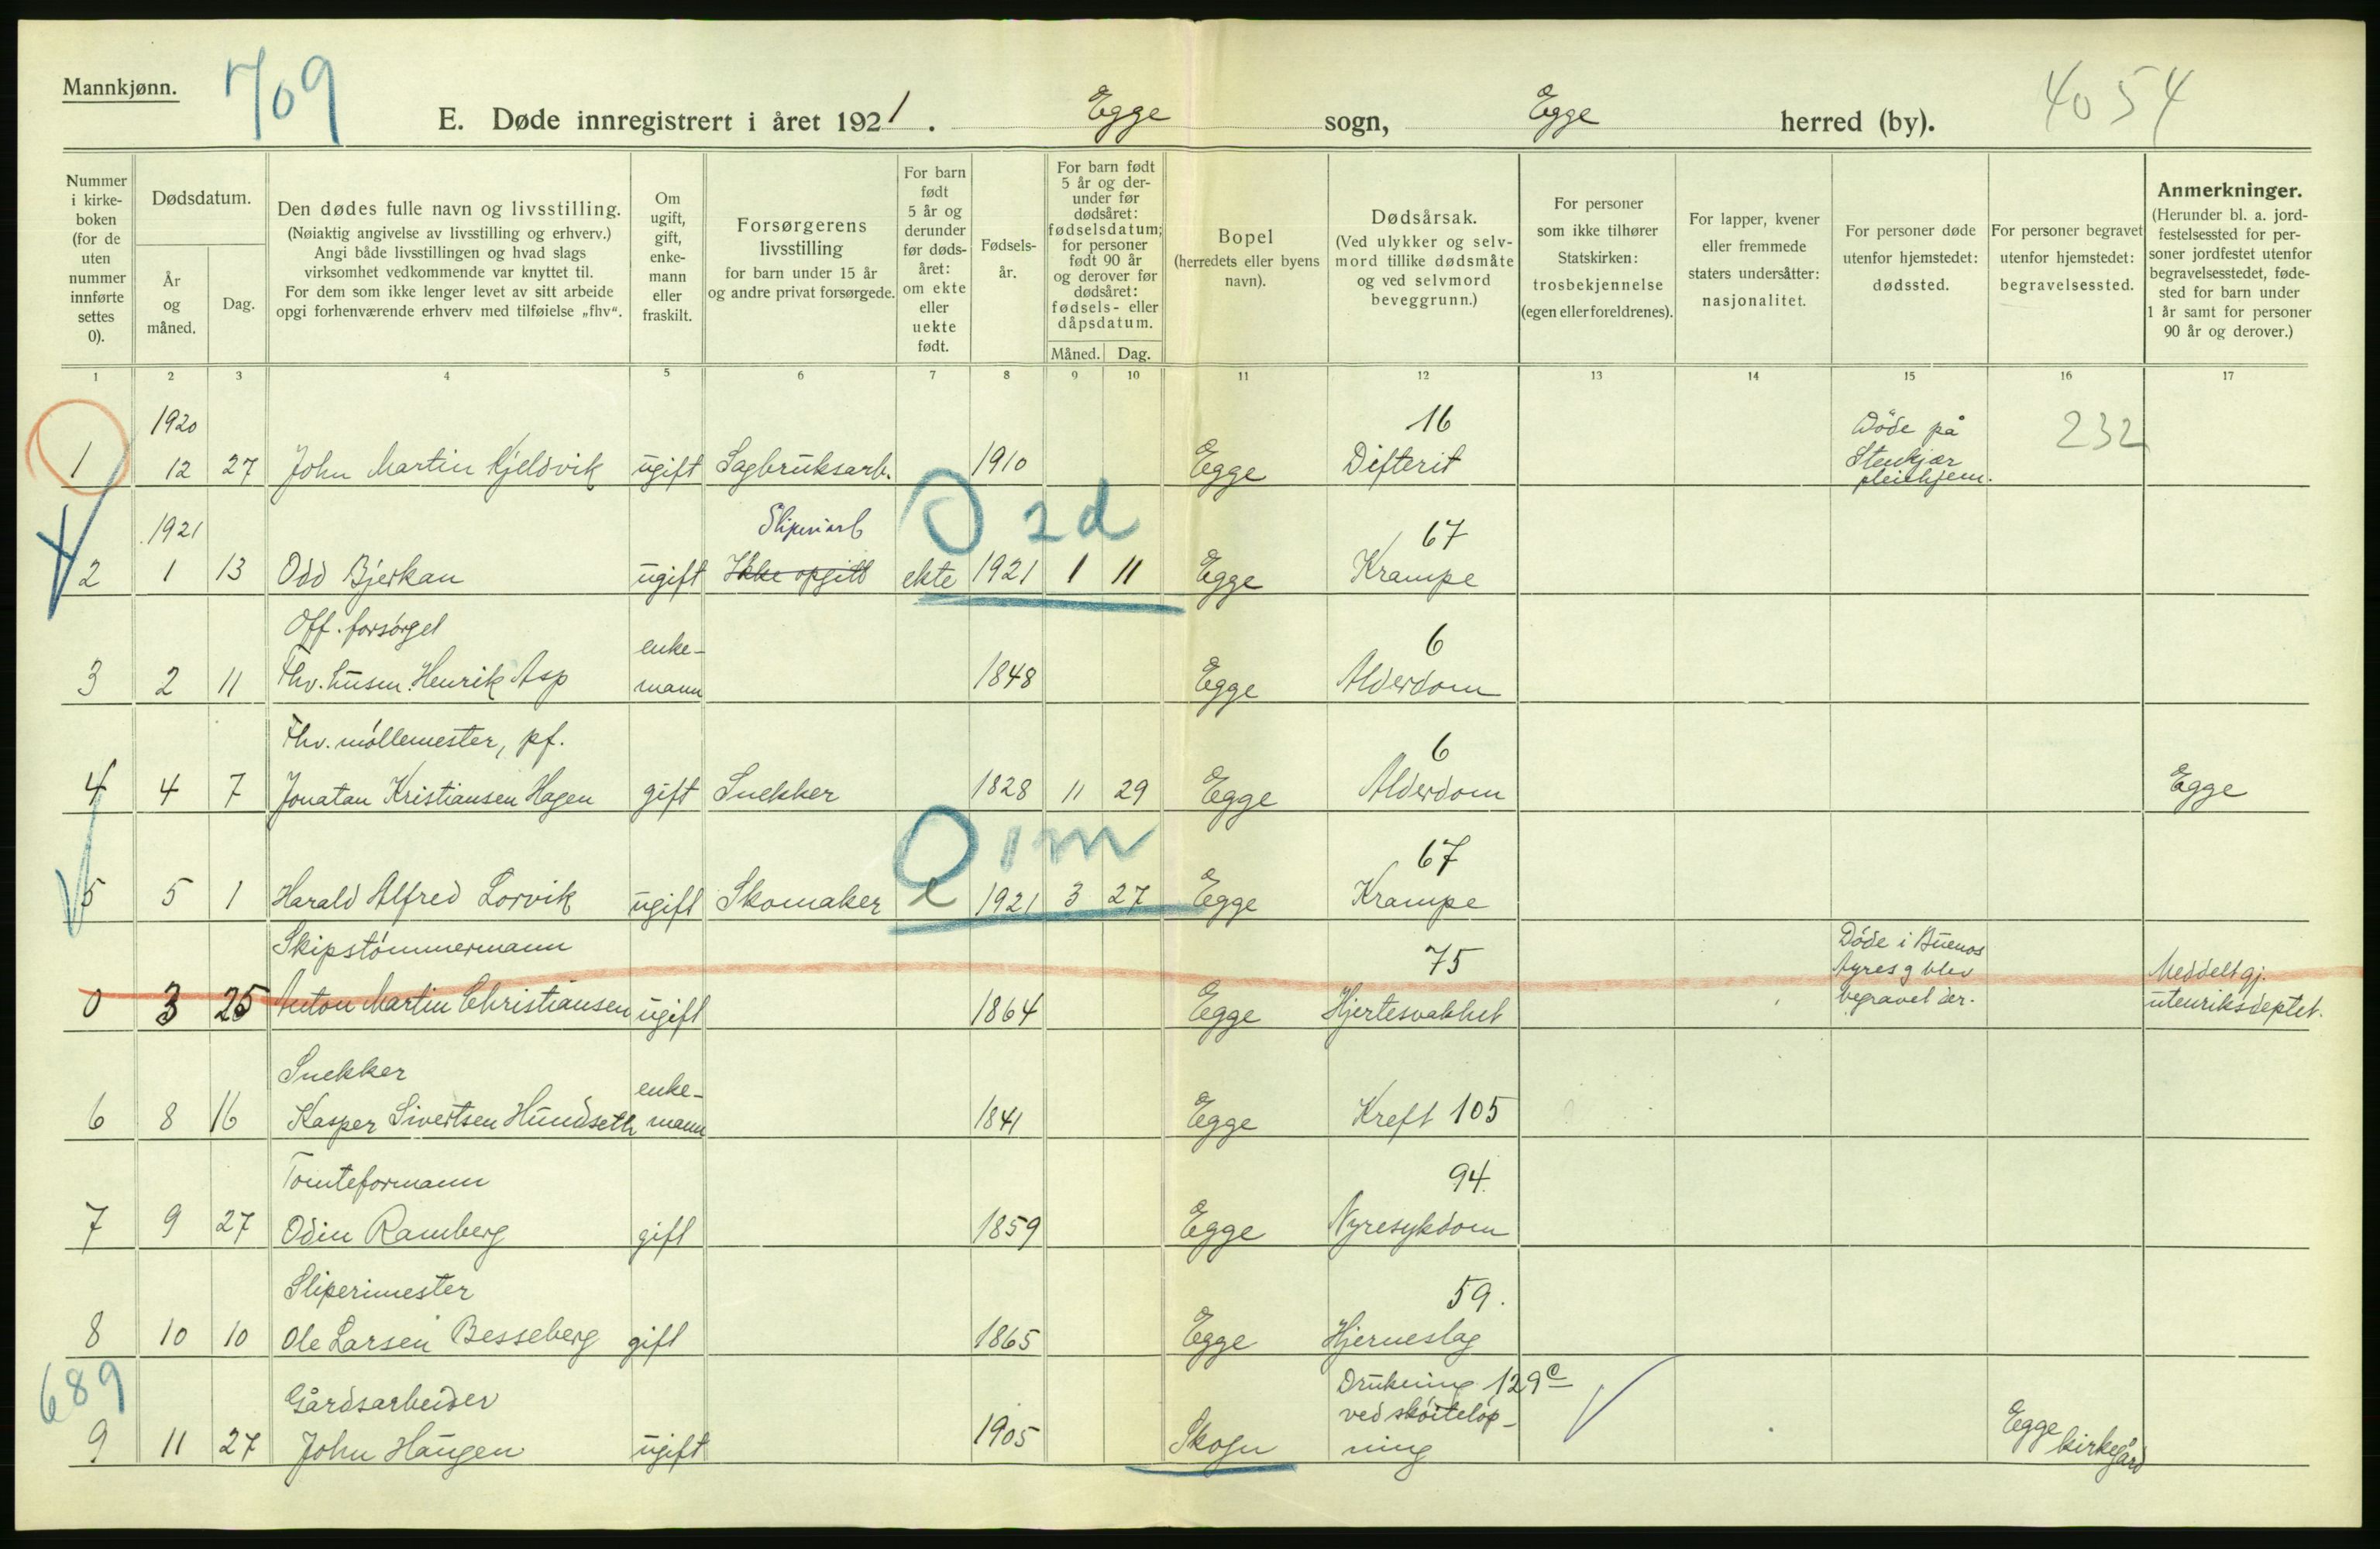 Mannkjønn.
709
E. Døde innregistrert i året 1921. Egge sogn, Egge herred (by).
4054
Nummer i kirke- boken (for de uten nummer innførte settes 0).
Dødsdatum.
År og måned.
Dag.
Den dødes fulle navn og livsstilling.
(Nøiaktig angivelse av livsstilling og erhverv.)
Angi både livsstillingen og hvad slags
virksomhet vedkommende var knyttet til.
For dem som ikke lenger levet av sitt arbeide
opgi forhenværende erhverv med tilføielse „fhv“.
Om ugift, gift, enke- mann eller fraskilt.
Forsørgerens livsstilling
for barn under 15 år
og andre privat forsørgede.
For barn født 5 år og derunder før døds- året: om ekte eller uekte født.
Fødsels- år.
For barn født 5 år og der- under før dødsåret: fødselsdatum; for personer født 90 år og derover før dødsåret: fødsels- eller dåpsdatum.
Måned. Dag.
Bopel
(herredets eller byens navn).
Dødsårsak.
(Ved ulykker og selv- mord tillike dødsmåte og ved selvmord beveggrunn.)
For personer som ikke tilhører Statskirken: trosbekjennelse (egen eller foreldrenes).
For lapper, kvener eller fremmede staters undersåtter: nasjonalitet.
For personer døde utenfor hjemstedet: dødssted.
For personer begravet utenfor hjemstedet: begravelsessted.
Anmerkninger.
(Herunder bl. a. jord- festelsessted for per- soner jordfestet utenfor begravelsesstedet, føde- sted for barn under 1 år samt for personer 90 år og derover.)
1 2 3 4 5 6 7 8 9 10 11 12 13 14 15 16 17
1920 16 Döde på 232
1 12 27 John Martin Kjeldvik ugift Sagbruksarb. 1910 Egge Difterit Stenkjær
pleiehjem.
1921 Sliperiarb 0 2d 67
2 1 13 Odd Bjerkan ugift Ikke opgitt ekte 1921 1 11 Egge Krampe
Off. forsörget enke- 6
3 2 11 Fhv. husm. Henrik Asp mann 1848 Egge Alderdom
Fhv. möllemester, pf. 6
4 4 7 Jonatan Kristiansen Hagen gift Snekker 1828 11 29 Egge Alderdom Egge
0 1m 67
5 5 1 Harald Alfred Lorvik ugift Skomaker e 1921 3 27 Egge Krampe
Skipstömmermann 75 Döde i Buenos
Ayres g blev Meddelt gj.
0 3 25 Anton Martin Christiansen ugift 1864 Egge Hjertesvakhet begravet der. utenriksdeptet.
Snekker enke-
6 8 16 Kasper Sivertsen Hundseth mann 1841 Egge Kreft 105
Tomteformann 94.
7 9 27 Odin Ramberg gift 1859 Egge Nyresykdom
Sliperimester 59.
8 10 10 Ole Larsen Besseberg gift 1865 Egge Hjerneslag
689 Gårdsarbeider Drukning 129c
ved sköiteløp-
9 11 27 John Haugen ugift 1905 Skogn ning Egge kirkegård